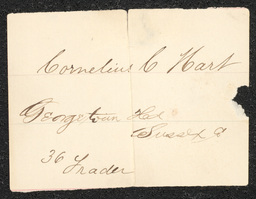 Cornelius C Hart
Georgetown
Sussex
36
Trader